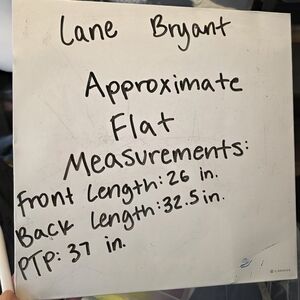 Lane Bryant
Approximate
Flat
Measurements:
Front Length: 26 in.
Back Length: 32.5 in.
PTP: 37 in.